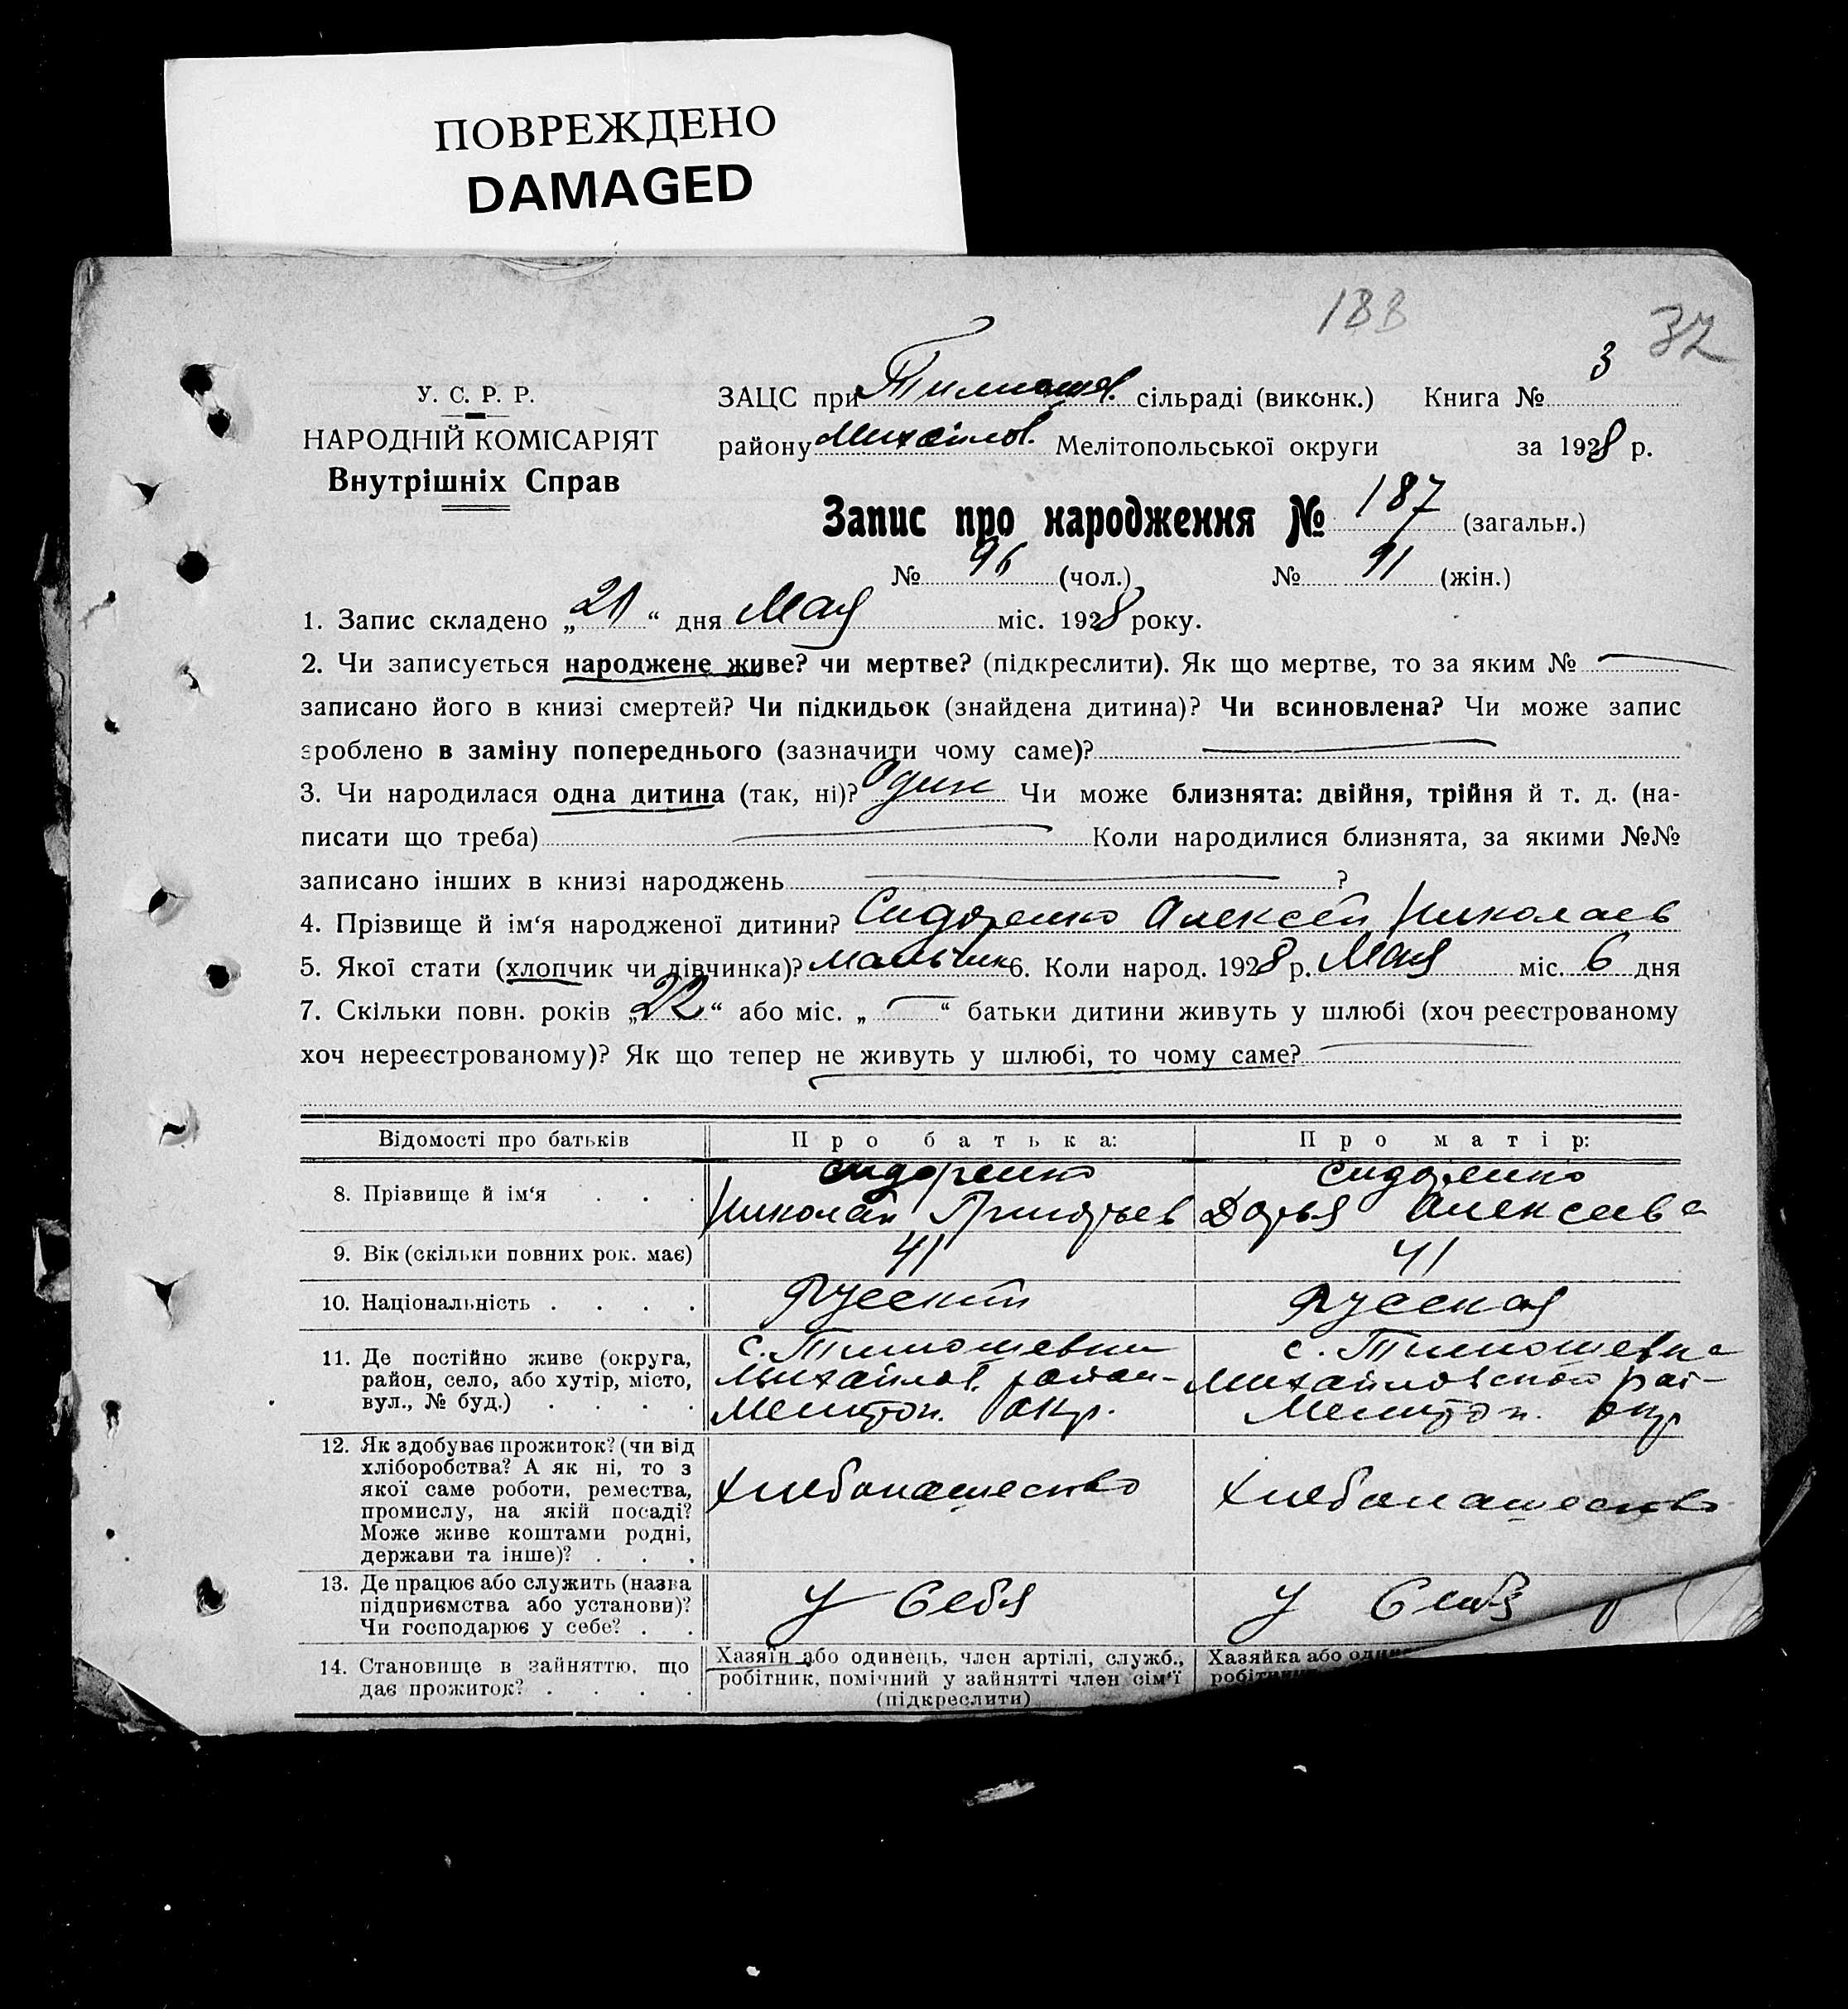 ПОВРЕЖДЕНО
DAMAGED
188 32
У. С. Р. Р.
НАРОДНІЙ КОМІСАРІЯТ
Внутрішніх Справ
ЗАЦС при Тимошев. сільраді (виконк.) Книга № 3
району Михайлов. Мелітопольської округи за 1928 р.
Запис про народження № 187 (загальн.)
№ 96 (чол.) № 91 (жін.)
1. Запис складено „ “ дня Мая міс. 1928 року.
2. Чи записується народжене живе? чи мертве? (підкреслити). Як що мертве, то за яким №
записано його в книзі смертей? Чи підкидьок (знайдена дитина)? Чи всиновлена? Чи може запис
зроблено в заміну попереднього (зазначити чому саме)?
3. Чи народилася одна дитина (так, ні)? Один Чи може близнята: двійня, трійня й т. д. (на-
писати що треба) Коли народилися близнята, за якими №№
записано інших в книзі народжень ?
4. Прізвище й ім‘я народженої дитини? Сидоренко Алексей Николаев
5. Якої стати (хлопчик чи дівчинка)? мальчик 6. Коли народ. 1928 р. Мая міс. 6 дня
7. Скільки повн. років „22“ або міс. „ “ батьки дитини живуть у шлюбі (хоч реєстрованому
хоч нереєстрованому)? Як що тепер не живуть у шлюбі, то чому саме?
Відомості про батьків Про батька: Про матір:
8. Прізвище й ім‘я . . . Сидоренко Николай Григорьев Сидоренко Дарья Алексеева
9. Вік (скільки повних рок. має) 41 41
10. Національність . . . . Русский Русская
11. Де постійно живе (округа,
район, село, або хутір, місто,
вул., № буд.) . . . .
с. Тимошевки
Михайлов. район-
Мелитоп. окр.
с. Тимошевка
Михайловского рай-
Мелитоп. окр
12. Як здобуває прожиток? (чи від
хліборобства? А як ні, то з
якої саме роботи, ремества,
промислу, на якій посаді?
Може живе коштами родні,
держави та інше)? . . .
Хлебопашество
Хлебопашество
13. Де працює або служить (назва
підприємства або установи)?
Чи господарює у себе? . .
У Себя
У Себя
14. Становище в зайняттю, що
дає прожиток? . . . .
Хазяїн або одинець, член артілі, служб.,
робітник, помічний у зайнятті член сім‘ї
(підкреслити)
Хазяйка або